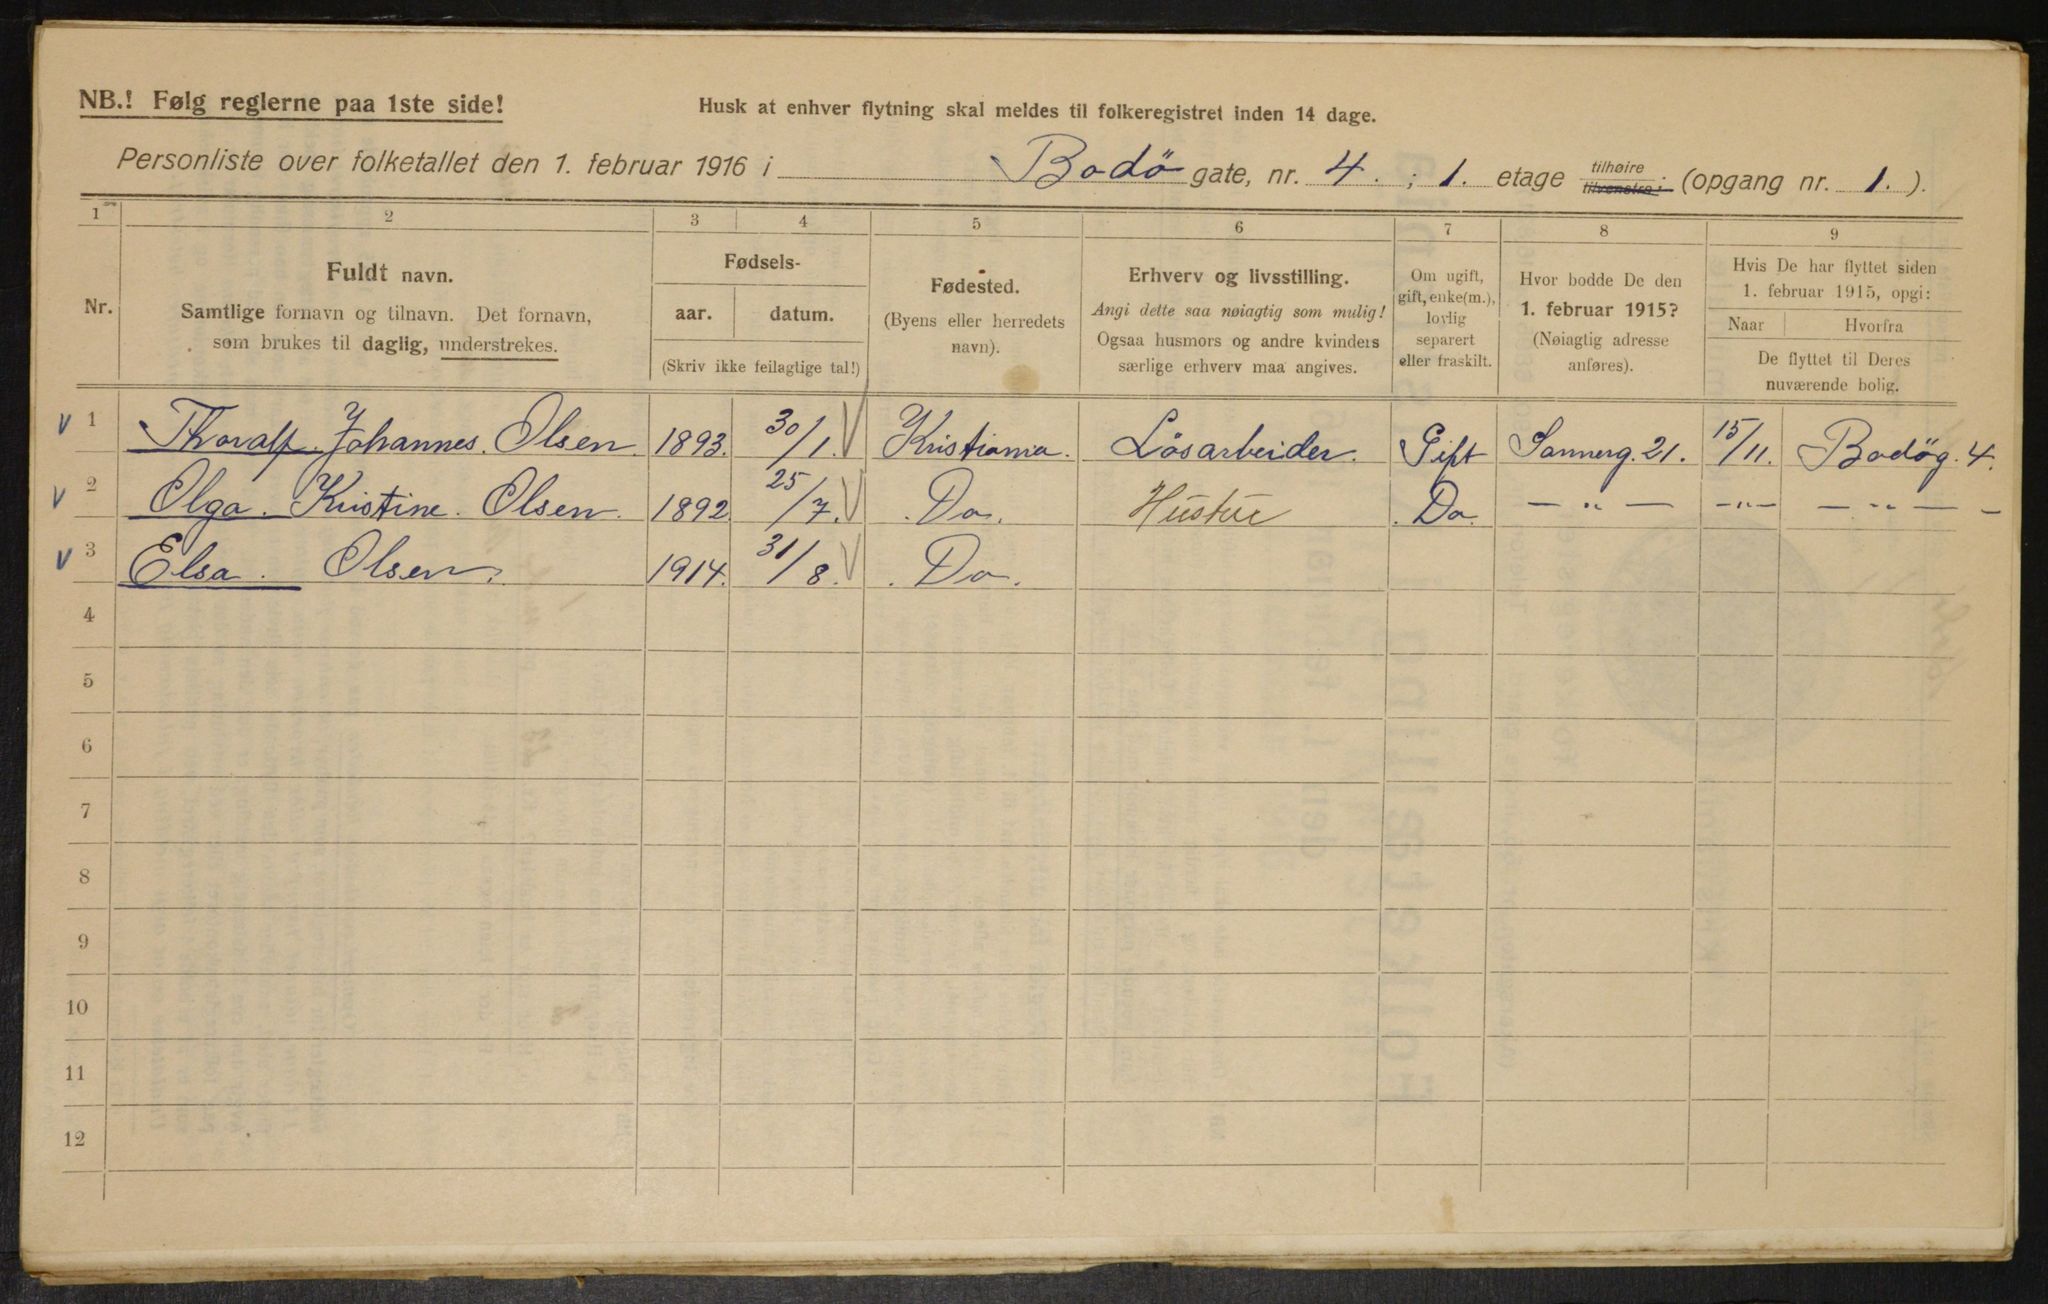 NB.! Følg reglerne paa 1ste side!
Husk at enhver flytning skal meldes til folkeregistret inden 14 dage.
Personliste over folketallet den 1. februar 1916 i Bodö gate, nr. 4. ; 1. etage tilhøire. tilvenstre: (opgang nr. 1. ).
1 2 3 4 5 6 7 8 9
Nr.
Fuldt navn.
Samtlige fornavn og tilnavn. Det fornavn,
som brukes til daglig, understrekes.
Fødsels-
aar. datum.
(Skriv ikke feilagtige tal!)
Fødested.
(Byens eller herredets
navn).
Erhverv og livsstilling.
Angi dette saa nøiagtig som mulig!
Ogsaa husmors og andre kvinders
særlige erhverv maa angives.
Om ugift,
gift, enke(m.),
lovlig
separert
eller fraskilt.
Hvor bodde De den
1. februar 1915?
(Nøiagtig adresse
anføres).
Hvis De har flyttet siden
1. februar 1915, opgi:
Naar Hvorfra
De flyttet til Deres
nuværende bolig.
V 1 Thoralf Johannes. Olsen 1893. 30/1. V Kristiania. Lösarbeider. Gift Sannerg. 21. 15/11. Bodög. 4.
V 2 Olga. Kristine. Olsen. 1892. 25/7. V Do. Hustru Do. — „ — — „ — — „ — —
V 3 Elsa. Olsen. 1914. 31/8. V Do.
4
5
6
7
8
9
10
11
12